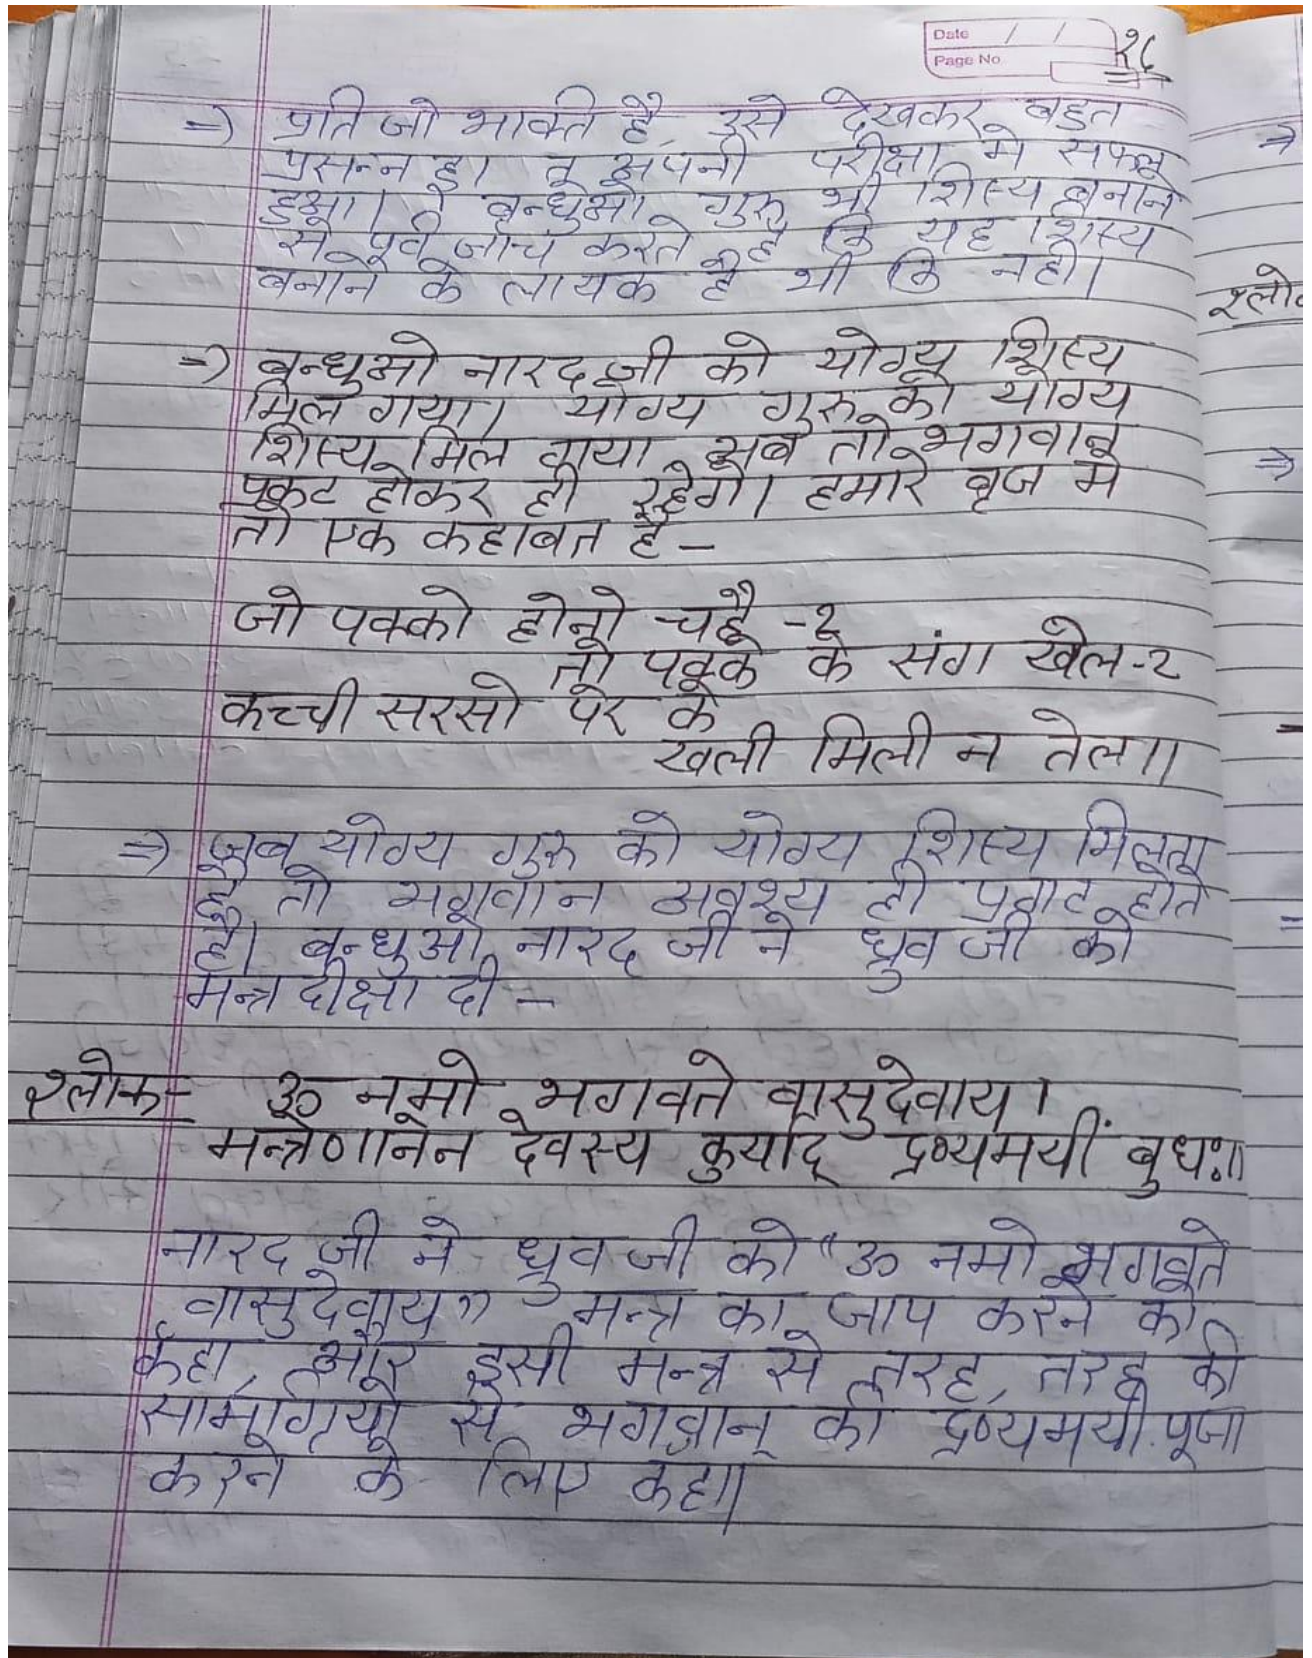 Date / /
Page No
२८
=> प्रति जो भक्ति है, उसे देखकर बहुत
प्रसन्न हू। तू अपनी परीक्षा मे सफल
हुआ। हे बन्धुओ गुरु भी शिस्य बनाने
से पूर्व जांच करते है कि यह शिस्य
बनाने के लायक है भी कि नही।
=> बन्धुओ नारद जी को योग्य शिस्य
मिल गया। योग्य गुरु को योग्य
शिस्य मिल गया अब तो भगवान्
प्रकट होकर ही रहेगे। हमारे बृज मे
तो एक कहाबत है -
जो पक्को होनो चहै -२
तो पक्के के संग खेल-२
कच्ची सरसो पेर के
खली मिली न तेल।।
=> जब योग्य गुरु को योग्य शिस्य मिलता
है तो भगवान अवश्य ही प्रगट होते
है। बन्धुओ नारद जी ने ध्रुव जी को
मन्त्र दीक्षा दी -
श्लोक- ॐ नमो भगवते वासुदेवाय।
मन्त्रेणानेन देवस्य कुर्याद् द्रव्यमयीं बुधः।।
नारद जी ने ध्रुव जी को "ॐ नमो भगवते
वासुदेवाय" मन्त्र का जाप करने को
कहा, और इसी मन्त्र से तरह, तरह की
सामग्रियो से भगवान् की द्रव्यमयी पूजा
करने के लिए कहा।
=>
श्लो
=>